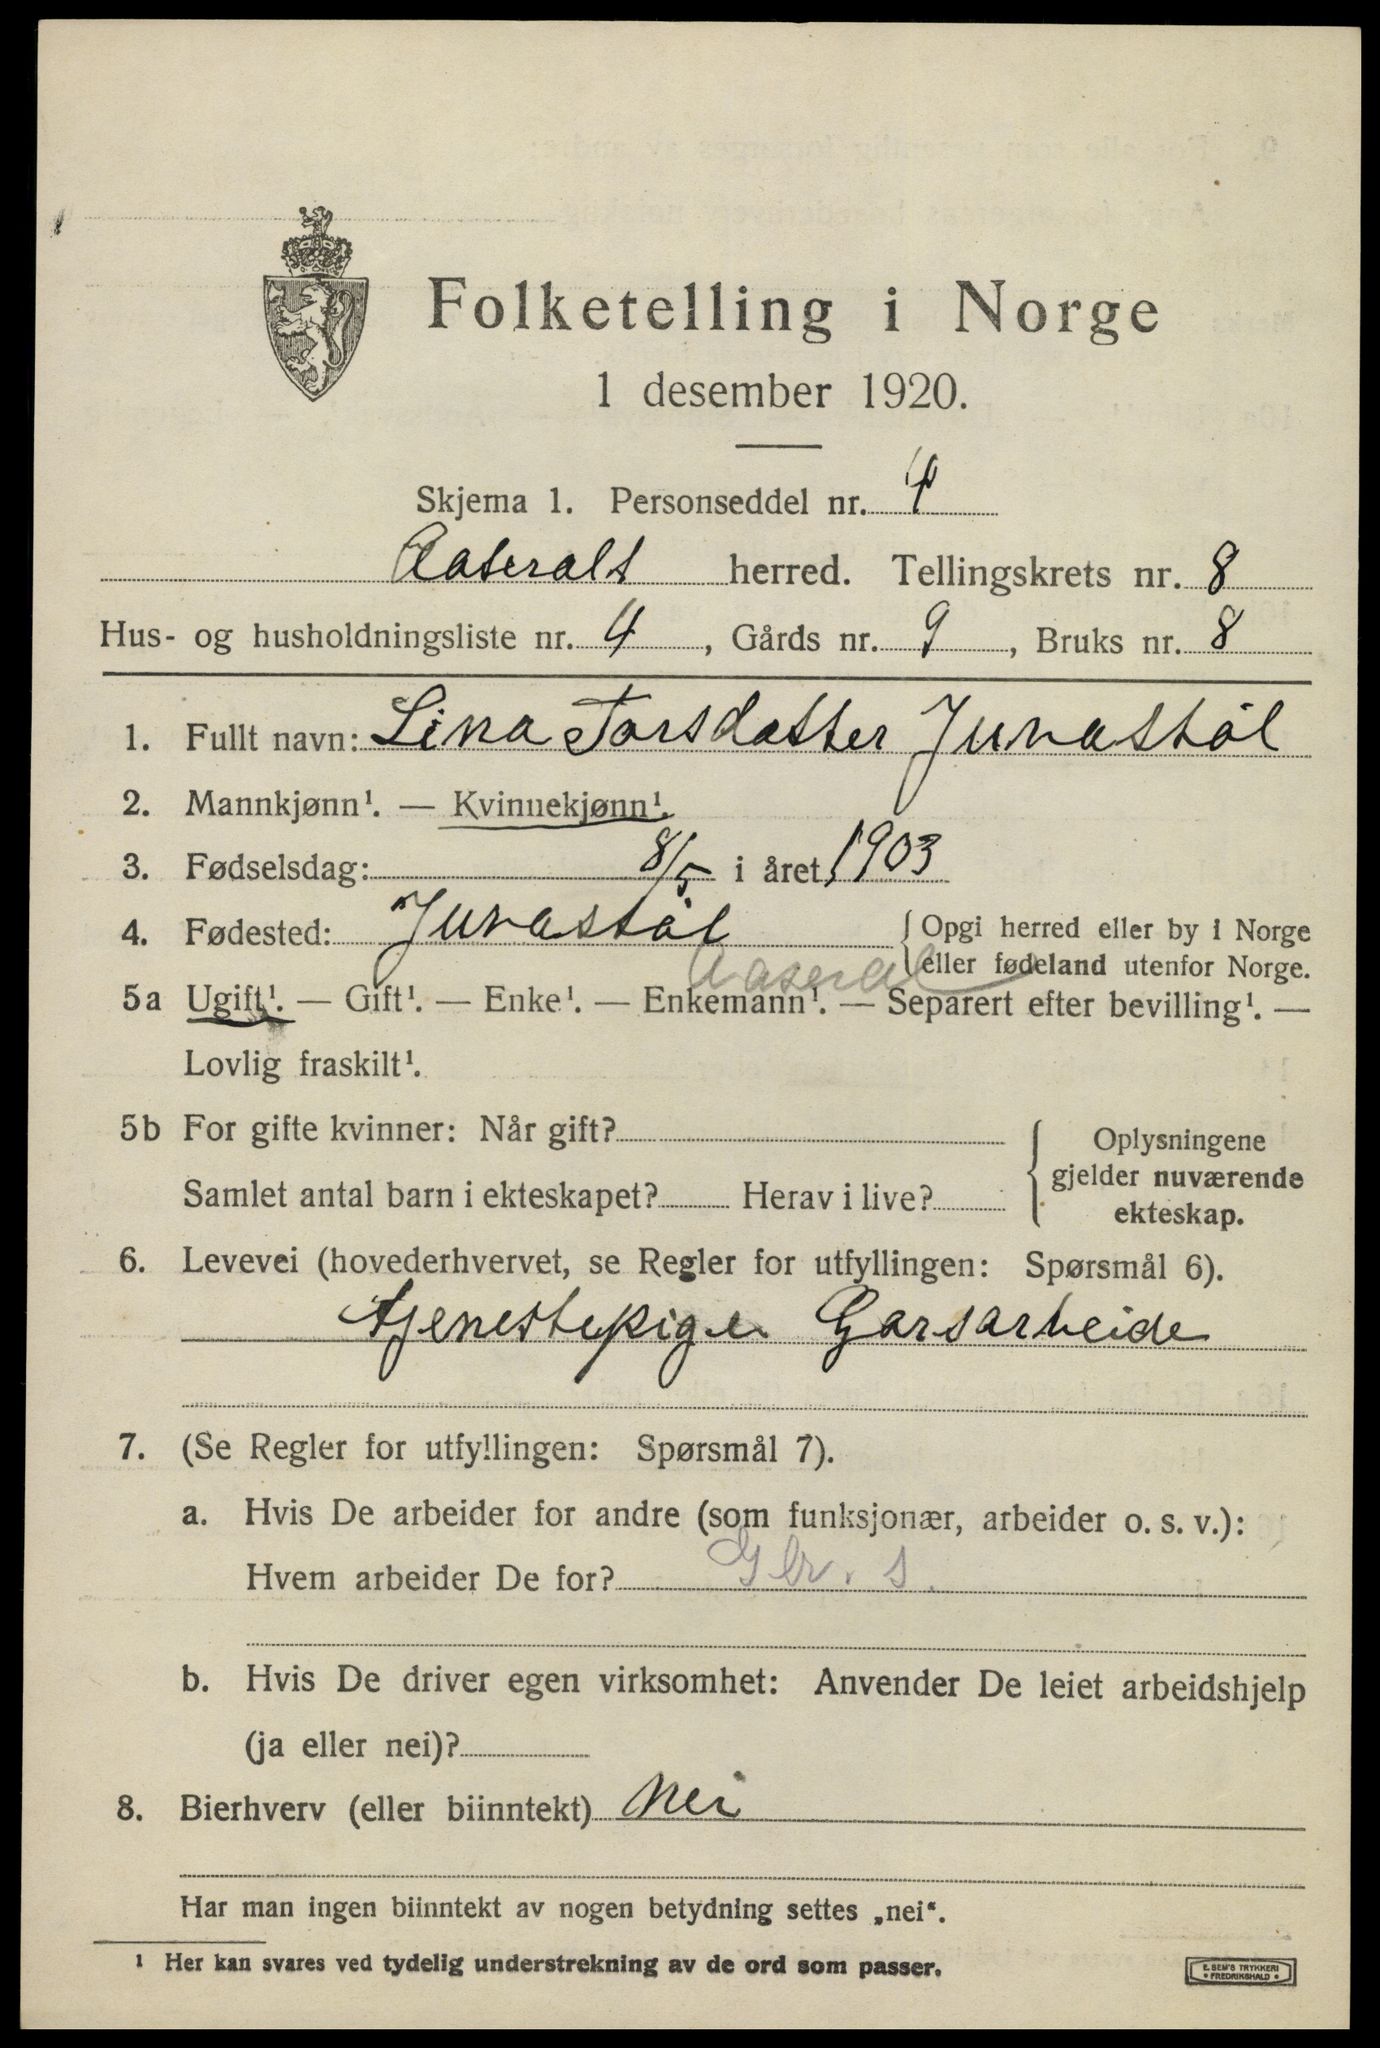 Folketelling i Norge
1 desember 1920.
Skjema 1. Personseddel nr. 4
Aaseralt herred. Tellingskrets nr. 8
Hus- og husholdningsliste nr. 4, Gårds nr. 9, Bruks nr. 8
1. Fullt navn: Lina Torsdatter Juvastøl
2. Mannkjønn¹. — Kvinnekjønn¹.
3. Fødselsdag: 8/5 i året 1903
4. Fødested: Juvastøl { Opgi herred eller by i Norge
Aaseral eller fødeland utenfor Norge.
5a Ugift¹. — Gift¹. — Enke¹. — Enkemann¹. — Separert efter bevilling¹. —
Lovlig fraskilt¹.
5b For gifte kvinner: Når gift? { Oplysningene
gjelder nuværende
Samlet antal barn i ekteskapet? Herav i live?
ekteskap.
6. Levevei (hovederhvervet, se Regler for utfyllingen: Spørsmål 6).
tjenestepige Garsarbeide
7. (Se Regler for utfyllingen: Spørsmål 7).
a. Hvis De arbeider for andre (som funksjonær, arbeider o. s. v.):
Hvem arbeider De for? Gbr. s.
b. Hvis De driver egen virksomhet: Anvender De leiet arbeidshjelp
(ja eller nei)?
8. Bierhverv (eller biinntekt) Nei
Har man ingen biinntekt av nogen betydning settes „nei“.
¹ Her kan svares ved tydelig understrekning av de ord som passer.
E. SEM'S TRYKKERI
• FREDRIKSHALD •